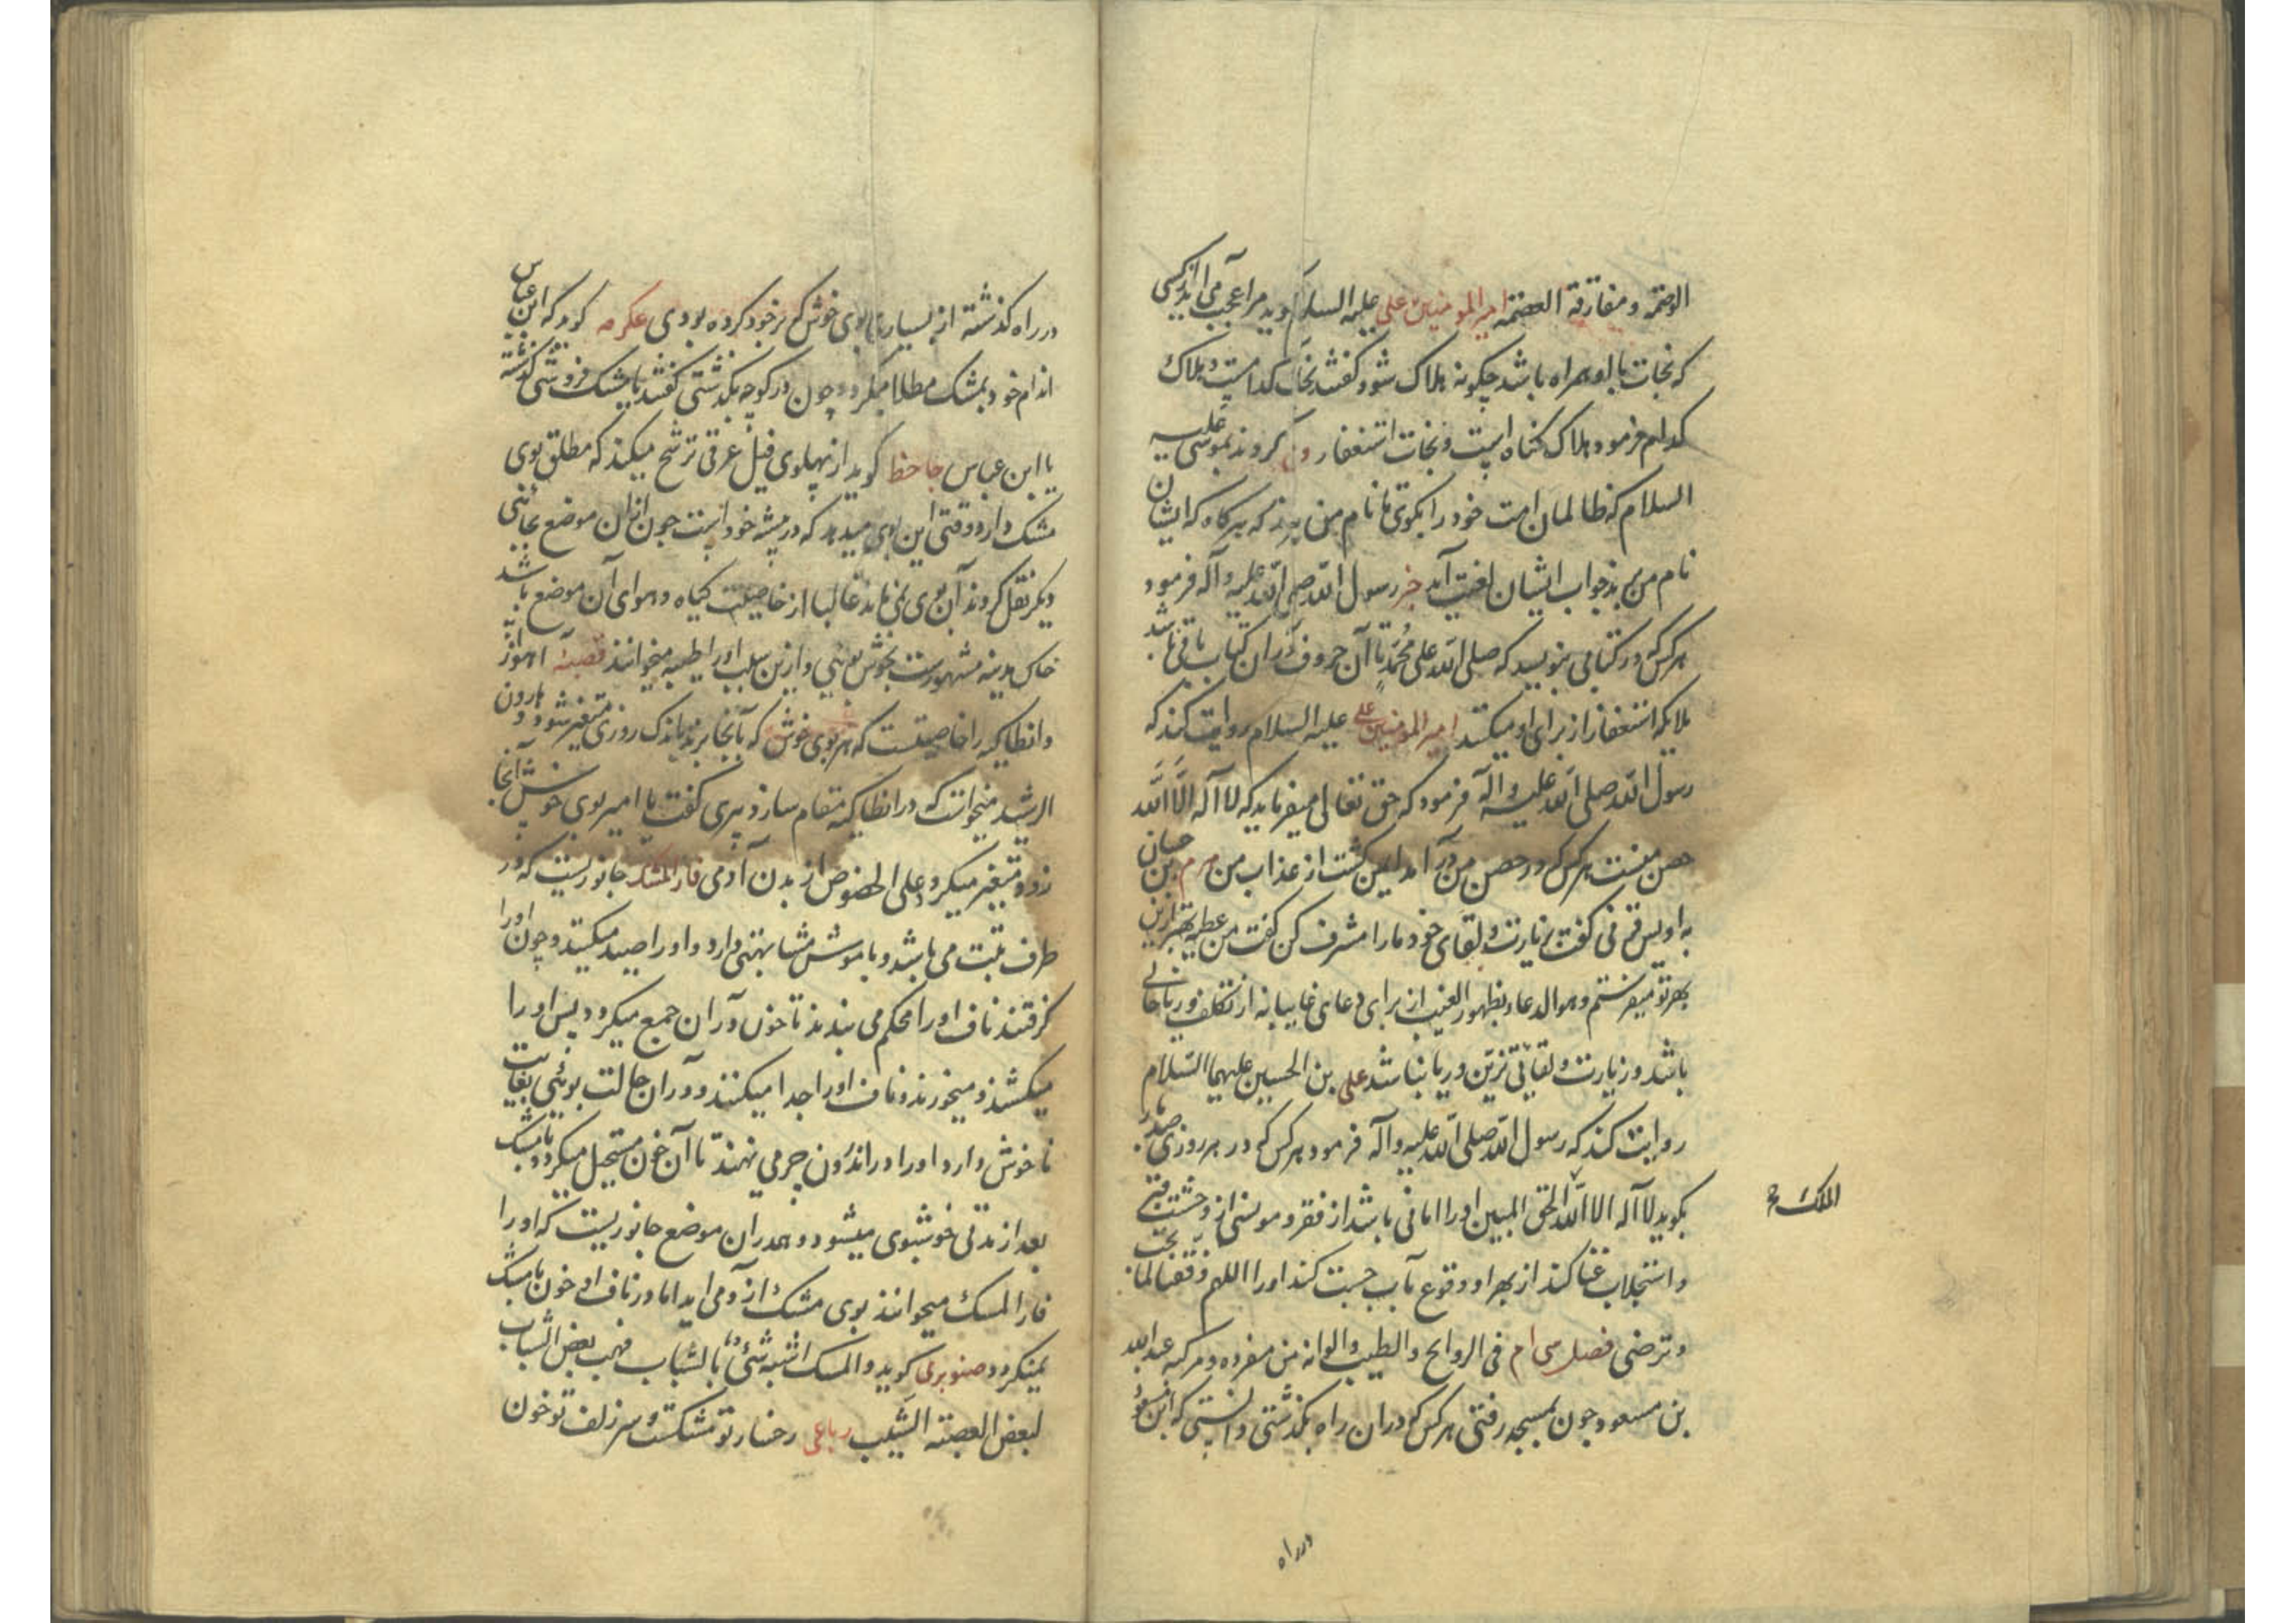 الوصمه ومفارقة العصمه امیرالمومنین علی علیه السلام کوید مرا عجب می آید از کسی
که نجات با او همراه باشد چکونه هلاک شود کفتند نجات کدامست و هلاک
کدام فرمود هلاک کناه است و نجات استغفار وحی کردند بموسی علیه
السلام که ظالمان امت خود را بکوی تا نام من نبرند که هرکاه که ایشان
نام من برند جواب ایشان لعنت آید خبر رسول الله صلی الله علیه وآله فرمود
هرکس که در کتابی بنویسد که صلی الله علی محمد تا آن حروف دران کتاب باقی باشد
ملایکه استغفار از برای او میکنند امیرالمومنین علی علیه السلام روایت کند که
رسول الله صلی الله علیه وآله فرمود که حق تعالی میفرماید که لا اله الا الله
حصن منست هرکس که در حصن من درآمد ایمن کشت از عذاب من هرم بن حیان
به اویس قرنی کفت بزیارت و لقای خود ما را مشرف کن کفت من عطیه بهتر ازین
بهر تو میفرستم وهو الدعاء بظهر الغیب از برای دعای غایبانه از تکلف و ریا خالی
باشد و زیارت و لقا بی تزین و ریا نباشد علی بن الحسین علیهما السلام
روایت کند که رسول الله صلی الله علیه وآله فرمود هرکس که در هر روزی صد بار
بکوید لا اله الا الله الحق المبین او را امانی باشد از فقر و مونسی از وحشت قبر
الملک
و استجلاب غنا کند از بهر او و قوع باب جنت کند او را اللهم وفقنا لما تحب
وترضی فصل سی ام فی الروایح والطیب والوانه من مفرده ومرکبه عبدالله
بن مسعود چون بمسجد رفتی هرکس که دران راه بکذشتی دانستی که ابن مسعود
درراه
درراه کذشته از بسیاری بوی خوش که بر خود کرده بودی عکرمه کوید که ابن عباس
اندام خود بمشک مطلا میکرد و چون در کوچه بکذشتی کفتند یا مشک فروشی کذشته
یا ابن عباس جاحظ کوید از پهلوی فیل عرقی ترشح میکند که مطلق بوی
مشک دارد و قتی این بوی میدهد که در بیشه خود است چون ازان موضع بجائی
دیکر نقل کردند آن بوی نمی ماند غالبا از خاصیت کیاه و هوای آن موضع باشد
خاک مدینه مشهورست بخوش بوئی و ازین سبب او را طیبه میخوانند قصبهٔ اهواز
و انطاکیه را خاصیتست که هر بوی خوش که بآنجا برند باندک روزی متغیر شود و هارون
الرشید میخواست که در انطاکیه مقام سازد پیری کفت یا امیر بوی خوش آنجا
زود متغیر میکردد علی الخصوص از بدن آدمی فارالمشک جانوریست که در
طرف تبت می باشد و با موش مشابهتی دارد و او را صید میکنند و چون او را
کرفتند ناف او را محکم می بندند تا خون دران جمع میکردد پس او را
میکشند و میخورند و ناف او را جدا میکنند و دران حالت بوئی بغایت
ناخوش دارد او را در اندرون چرمی نهند تا آن خون مستحیل میکردد بامشک
بعد از مدتی خوشبوی میشود و همدران موضع جانوریست که او را
فارالمسک میخوانند بوی مشک ازو می اید اما در ناف او خون بامشک
نمیکردد صنوبری کوید والمسک اشبه شئ بالشباب فهب بعض الشباب
لبعض العصبته الشیب رباعی رخسار تو مشکست و سر زلف تو خون